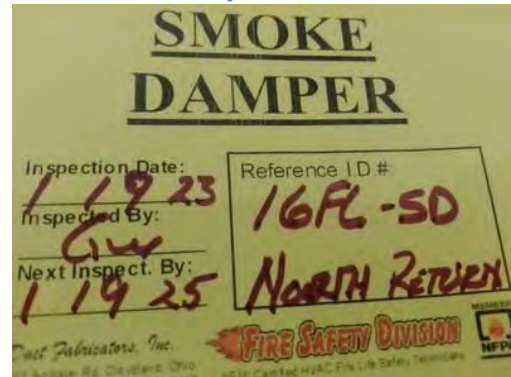 SMOKE
DAMPER
Inspection Date:
1 19 23
Inspected By:
Next Inspect. By:
1 19 25
Reference ID #
16FL-SD
NORTH RETURN
Duct Fabricators, Inc.
Rd. Cleveland, Ohio
FIRE SAFETY DIVISION
Certified HVAC Fire Life Safety Technicians
MEMBER
NFPA